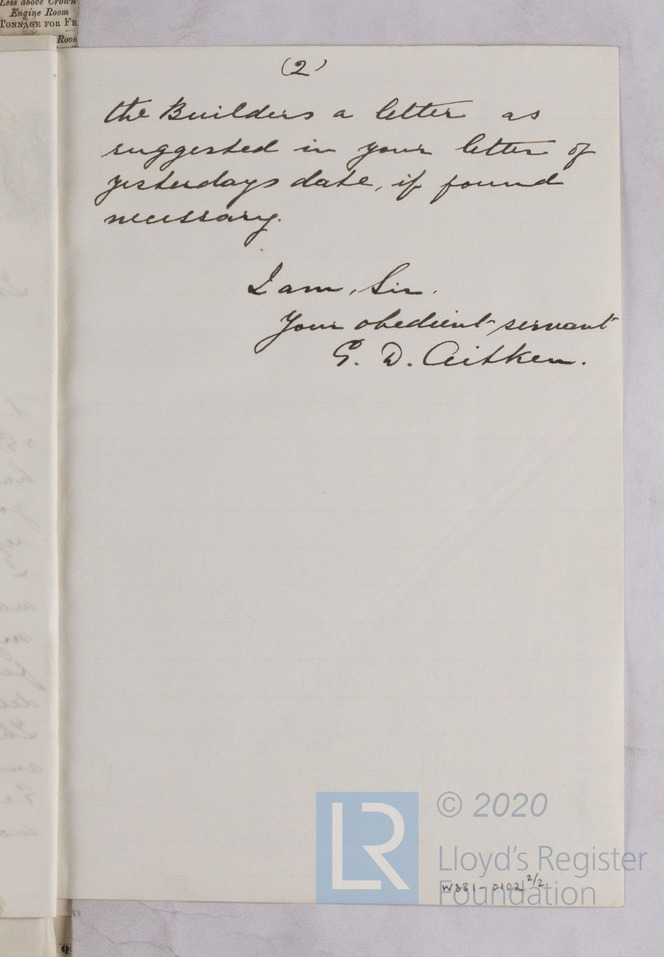 Less above Crown
Engine Room
TONNAGE FOR FE
Room
(2)
the Builders a letter as
suggested in your letter of
yesterdays date, if found
necessary.
I am, Sir.
Your obedient servant
G. D. Aitken.
LR
© 2020
Lloyd's Register
Foundation
W881-0102 2/2